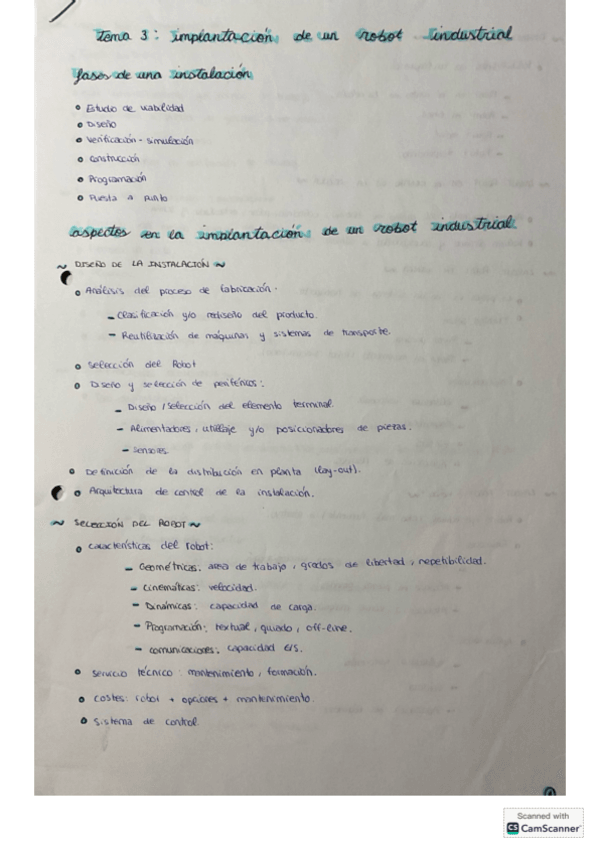 Tema 3: implantación de un robot industrial
fases de una instalación
• Estudio de viabilidad
• Diseño
• Verificación - simulación
• Construcción
• Programación
• Puesta a punto
aspectos en la implantación de un robot industrial
~ DISEÑO DE LA INSTALACIÓN ~
• Análisis del proceso de fabricación.
- Clasificación y/o rediseño del producto.
- Reutilización de máquinas y sistemas de transporte.
• Selección del Robot
• Diseño y selección de periféricos:
- Diseño / Selección del elemento terminal
- Alimentadores, utillaje y/o posicionadores de piezas.
- Sensores.
• Definición de la distribución en planta (lay-out).
• Arquitectura de control de la instalación.
~ SELECCIÓN DEL ROBOT ~
• Características del robot:
- Geométricas: area de trabajo, grados de libertad, repetibilidad.
- Cinemáticas: velocidad.
- Dinámicas: capacidad de carga.
- Programación: textual, guiado, off-line.
- comunicaciones: capacidad e/s.
• Servicio técnico: mantenimiento, formación.
• Costes: robot + opciones + mantenimiento.
• Sistema de control
Scanned with
CS CamScanner